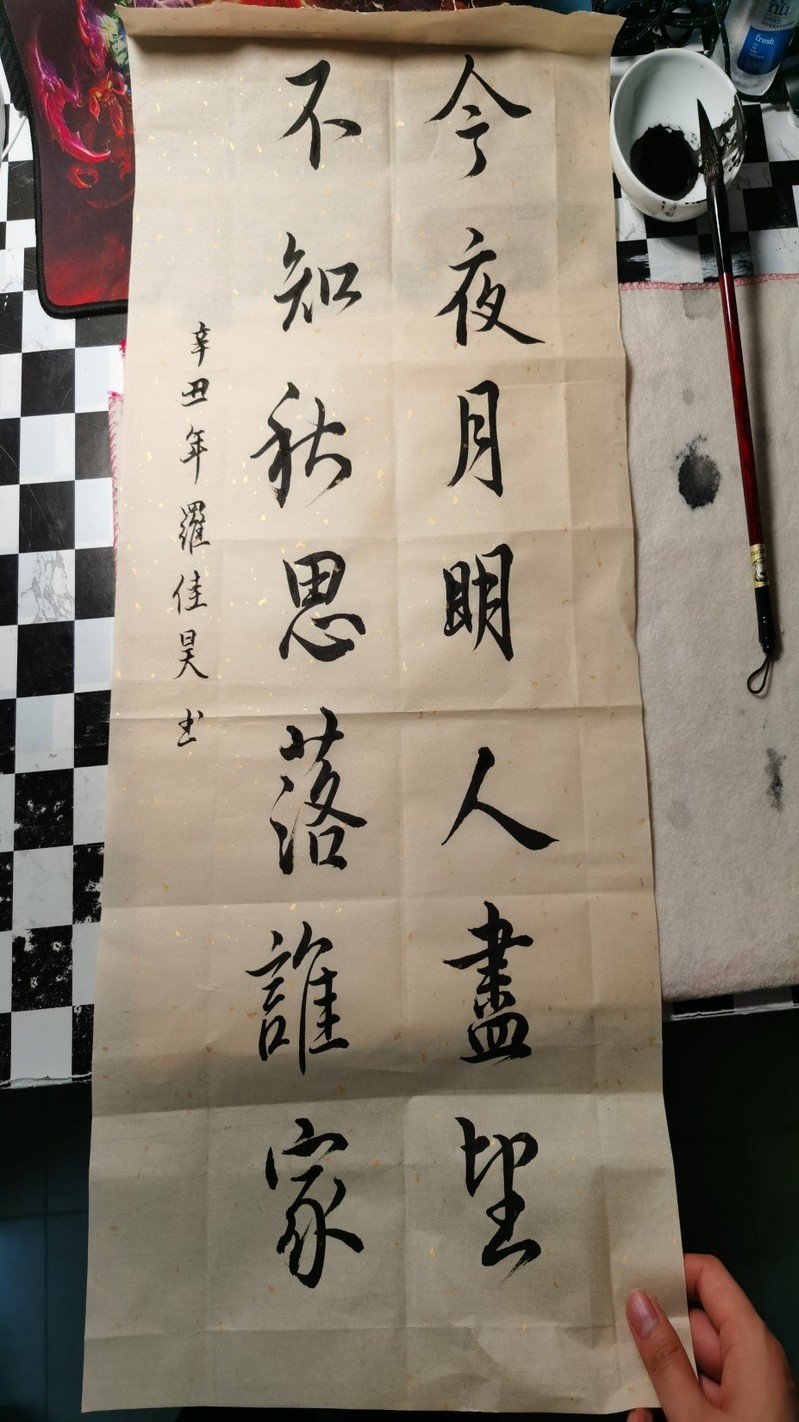 今夜月明人盡望
不知秋思落誰家
辛丑年羅佳昊书
fresh